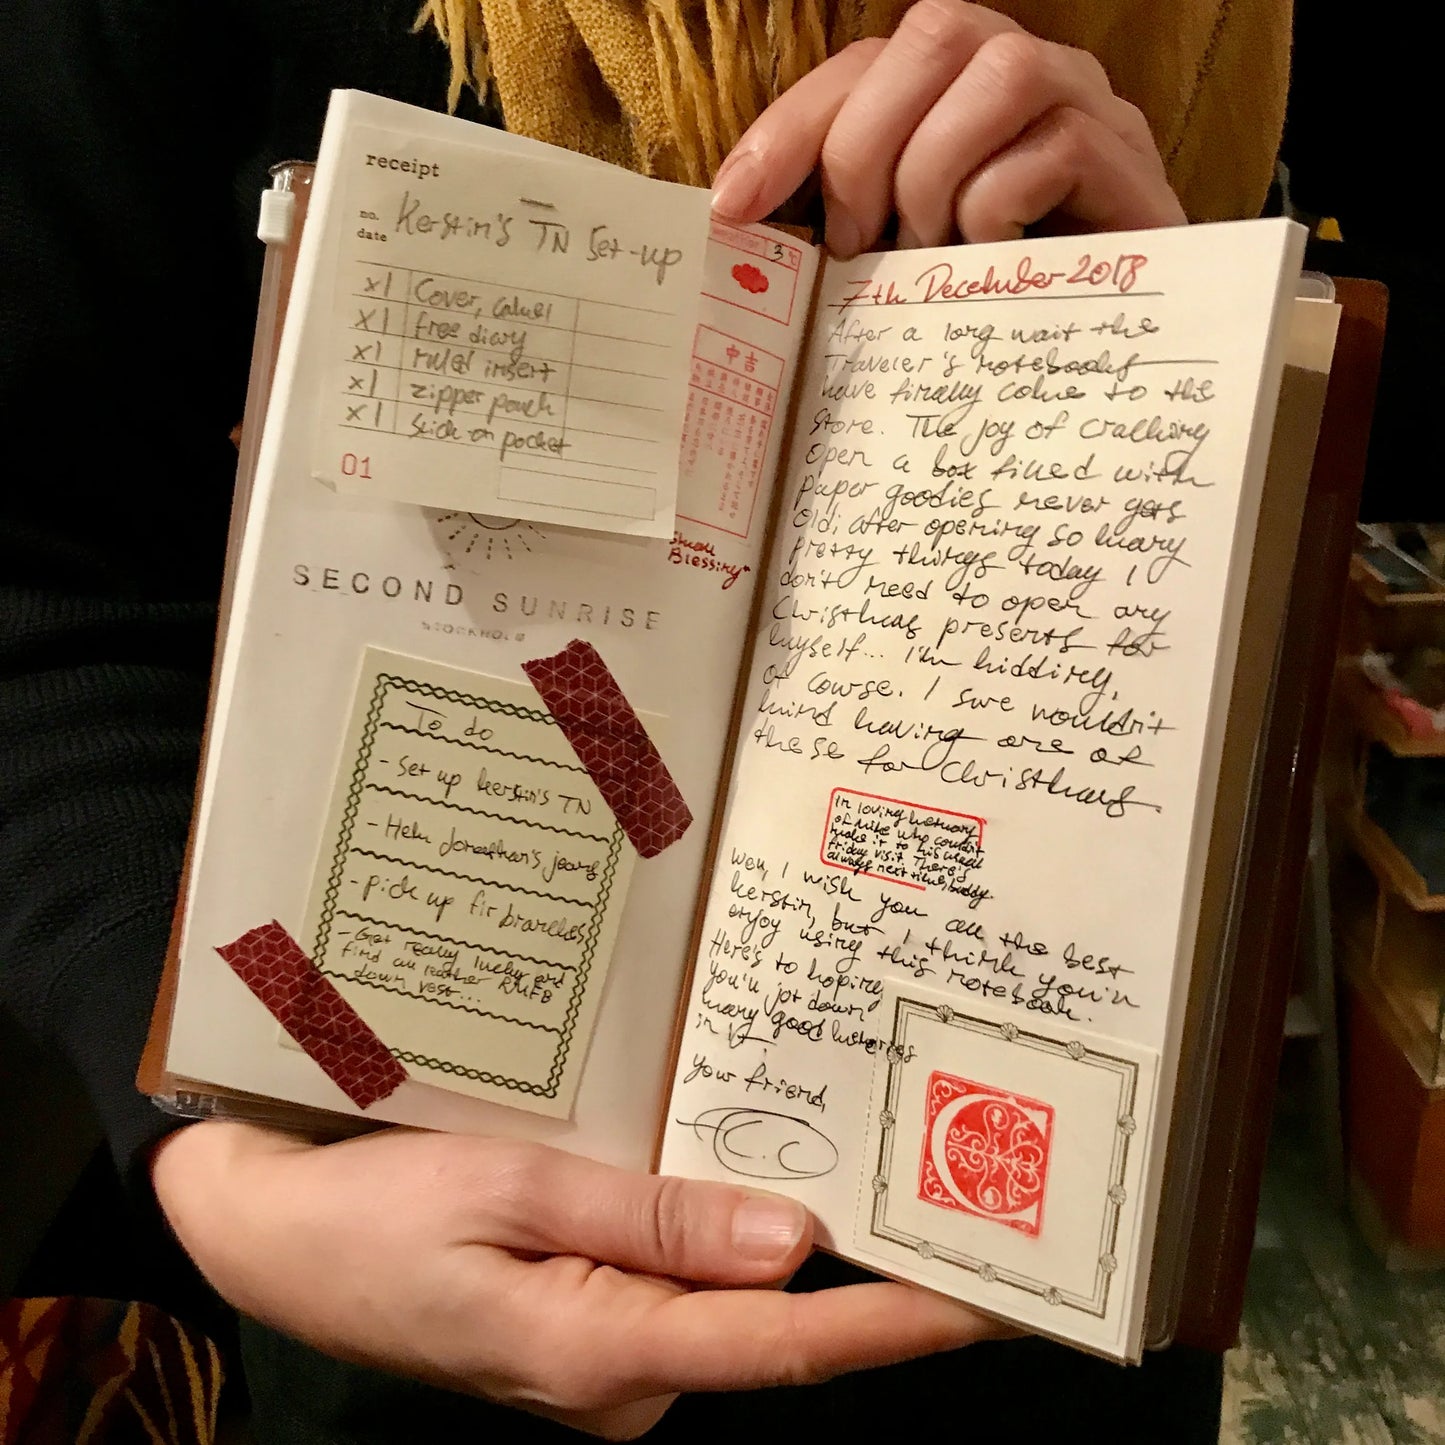 receipt
no.
date
Kerstin's TN Set-up
x1 Cover, camel
x1 free diary
x1 ruled insert
x1 zipper pouch
x1 Stick-on pocket
01
3 ℃
中吉
Small
Blessing
SECOND SUNRISE
STOCKHOLM
To do
- Set up kerstin's TN
- Help Jonathan's
- pick up fir branches
- Get really lucky and
find an leather RMFB
down vest...
7th December 2018
After a long wait the
Traveler's notebooks
have finally come to the
store. The joy of cracking
open a box filled with
paper goodies never gets
old; after opening so many
pretty things today I
don't need to open any
Christmas presents for
myself... I'm kidding,
of course. I sure wouldn't
mind having one of
these for Christmas.
In loving memory
of Mike who couldn't
make it to his usual
Friday visit. There's
always next time, buddy.
Well, I wish you all the best
kerstin, but I think you'll
enjoy using this notebook.
Here's to hoping
you'll jot down
many good memories
in it.
your friend,
C